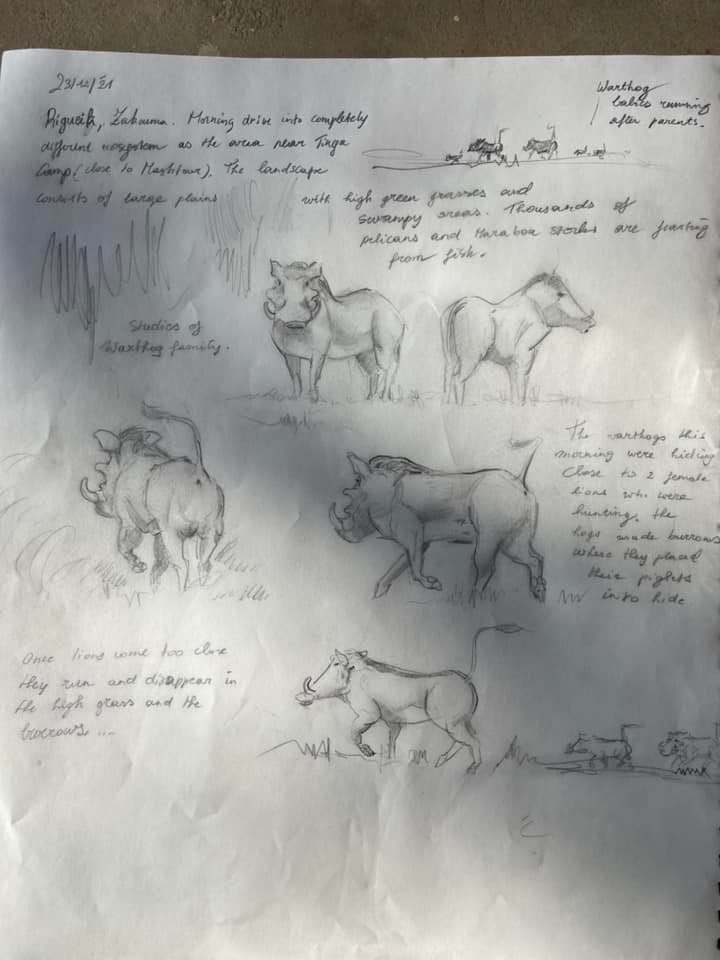 23/12/21
Rigueik, Zakouma. Morning drive into completely
different ecosystem as the area near Tinga
Camp (close to Mashtour). The landscape
consists of large plains
with high green grasses and
swampy areas. Thousands of
pelicans and Marabou storks are feasting
from fish.
Warthog
babies running
after parents.
Studies of
Warthog family.
The warthogs this
morning were hiding
close to 2 female
lions who were
hunting. the
hogs made burrows
where they placed
their piglets
into hide
Once lions come too close
they run and disappear in
the high grass and the
burrows....